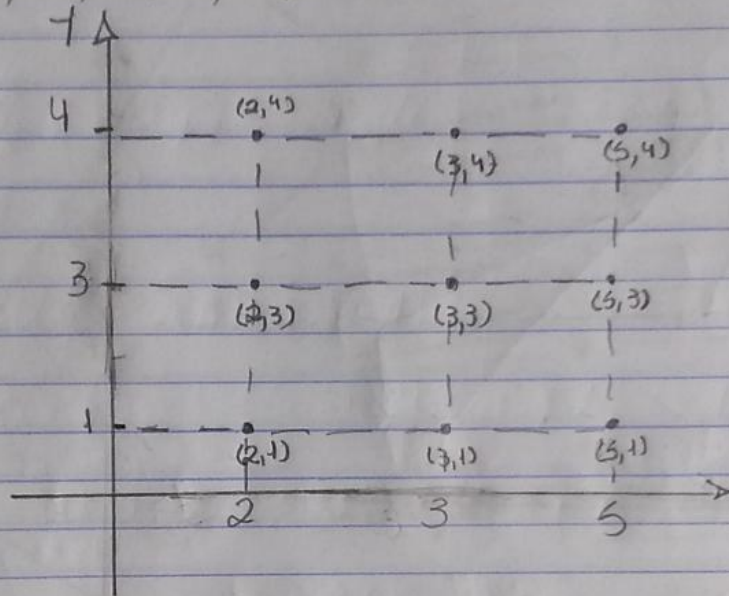 Y
4 (2,4)
(3,4) (5,4)
3
(2,3) (3,3) (5,3)
1
(2,1) (3,1) (5,1)
2 3 5